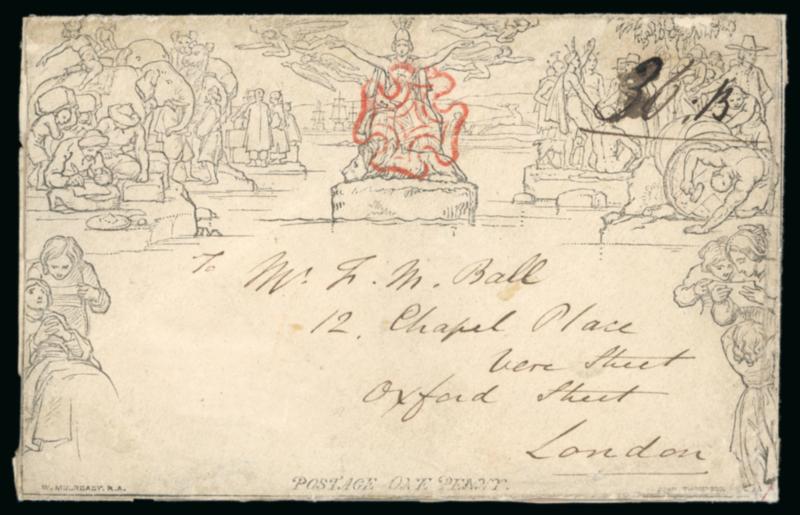 36:B
To Mr. F. M. Ball
12. Chapel Place
Vere Street
Oxford Street
London
POSTAGE ONE PENNY.
W. MULREADY. R.A.
JOHN THOMPSON